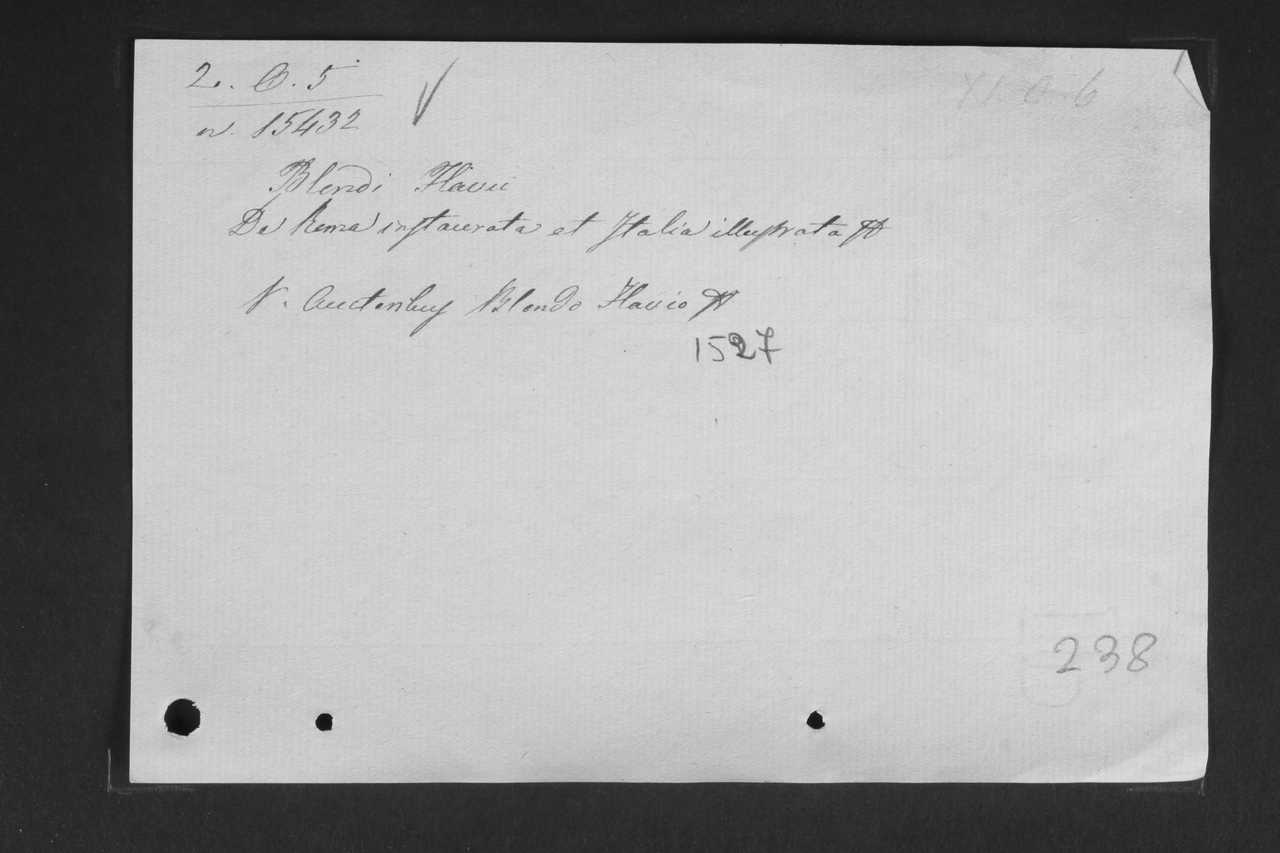 2. B. 5
XI. C. 6
n. 15432
Blondi Flavii
De Roma instaurata et Italia illustrata
V. Auctoribus Blondo Flavio
1527
238